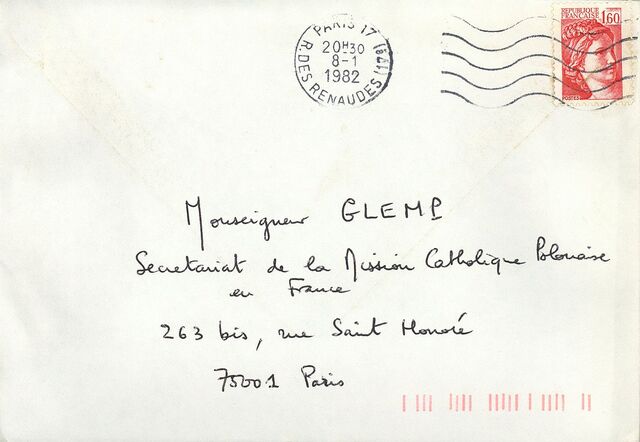 PARIS 17 (17e)
20H30
8-1
1982
R. DES RENAUDES
REPUBLIQUE
FRANÇAISE
1,60
POSTES
Monseigneur GLEMP
Secretariat de la Mission Catholique Polonaise
en France
263 bis, rue Saint Honoré
75001 Paris